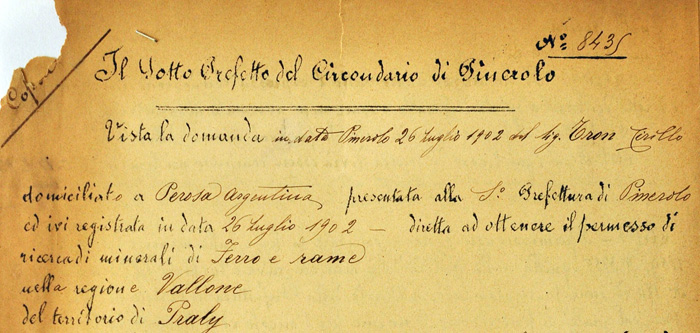 Nº 8435
Copia
Il Sotto Prefetto del Circondario di Pinerolo
Vista la domanda in data Pinerolo 26 Luglio 1902 del Sig. Tron Cirillo
domiciliato a Perosa Argentina presentata alla Sº Prefettura di Pinerolo
ed ivi registrata in data 26 Luglio 1902 — diretta ad ottenere il permesso di
ricerca di minerali di Ferro e rame
nella regione Vallone
del territorio di Praly